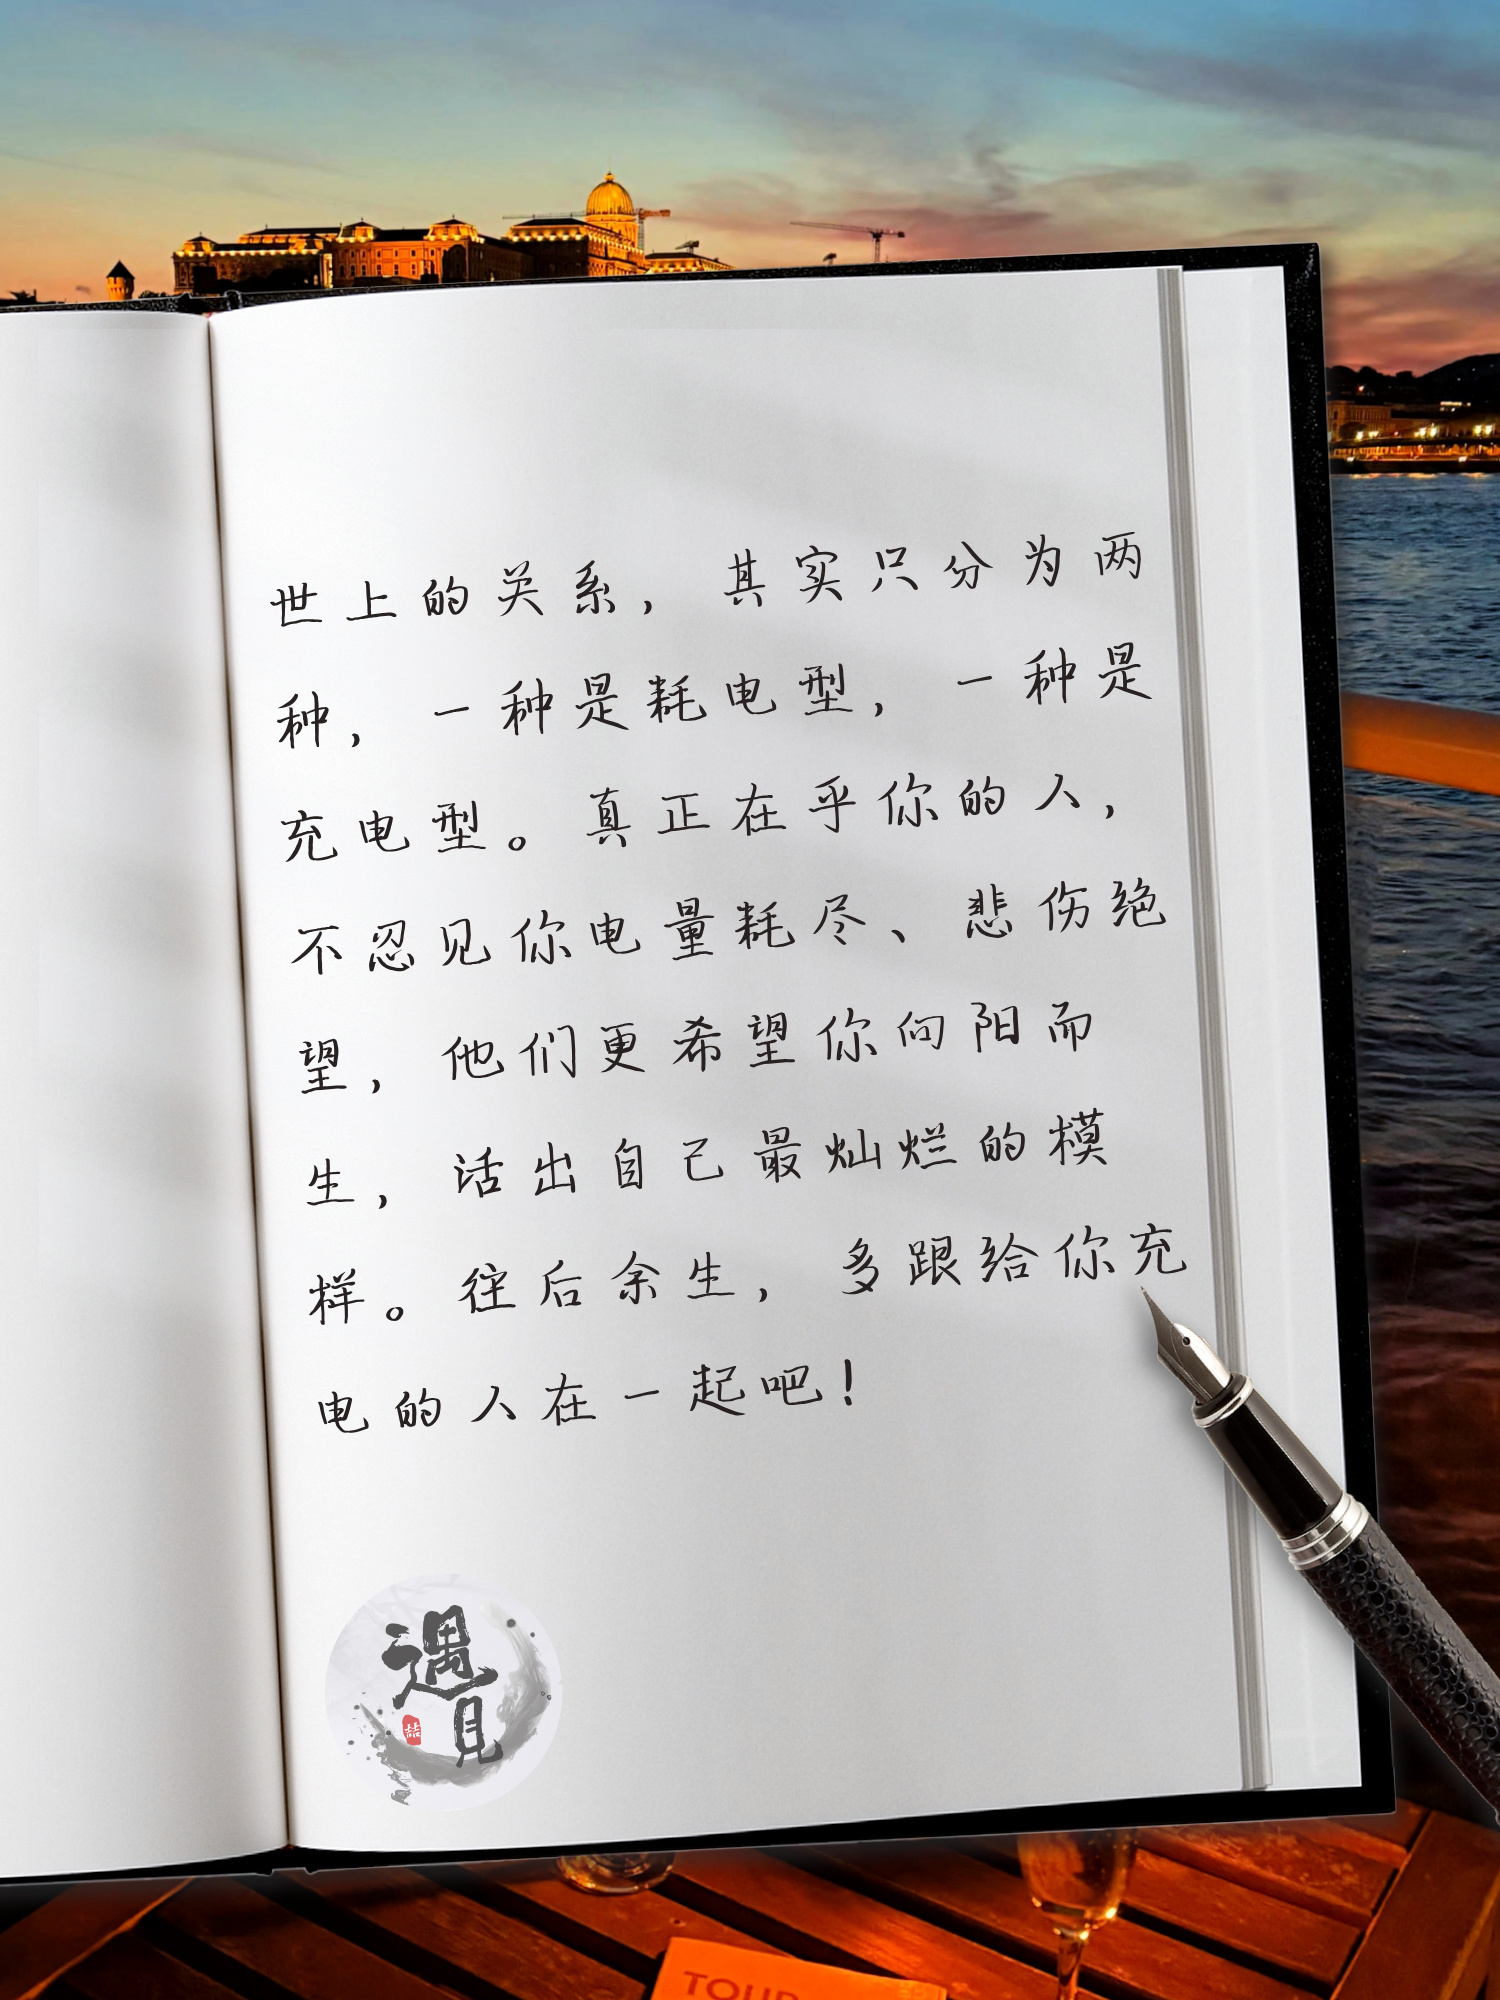 世上的关系，其实只分为两
种，一种是耗电型，一种是
充电型。真正在乎你的人，
不忍见你电量耗尽、悲伤绝
望，他们更希望你向阳而
生，活出自己最灿烂的模
样。往后余生，多跟给你充
电的人在一起吧！
遇
見
喆
TOUR